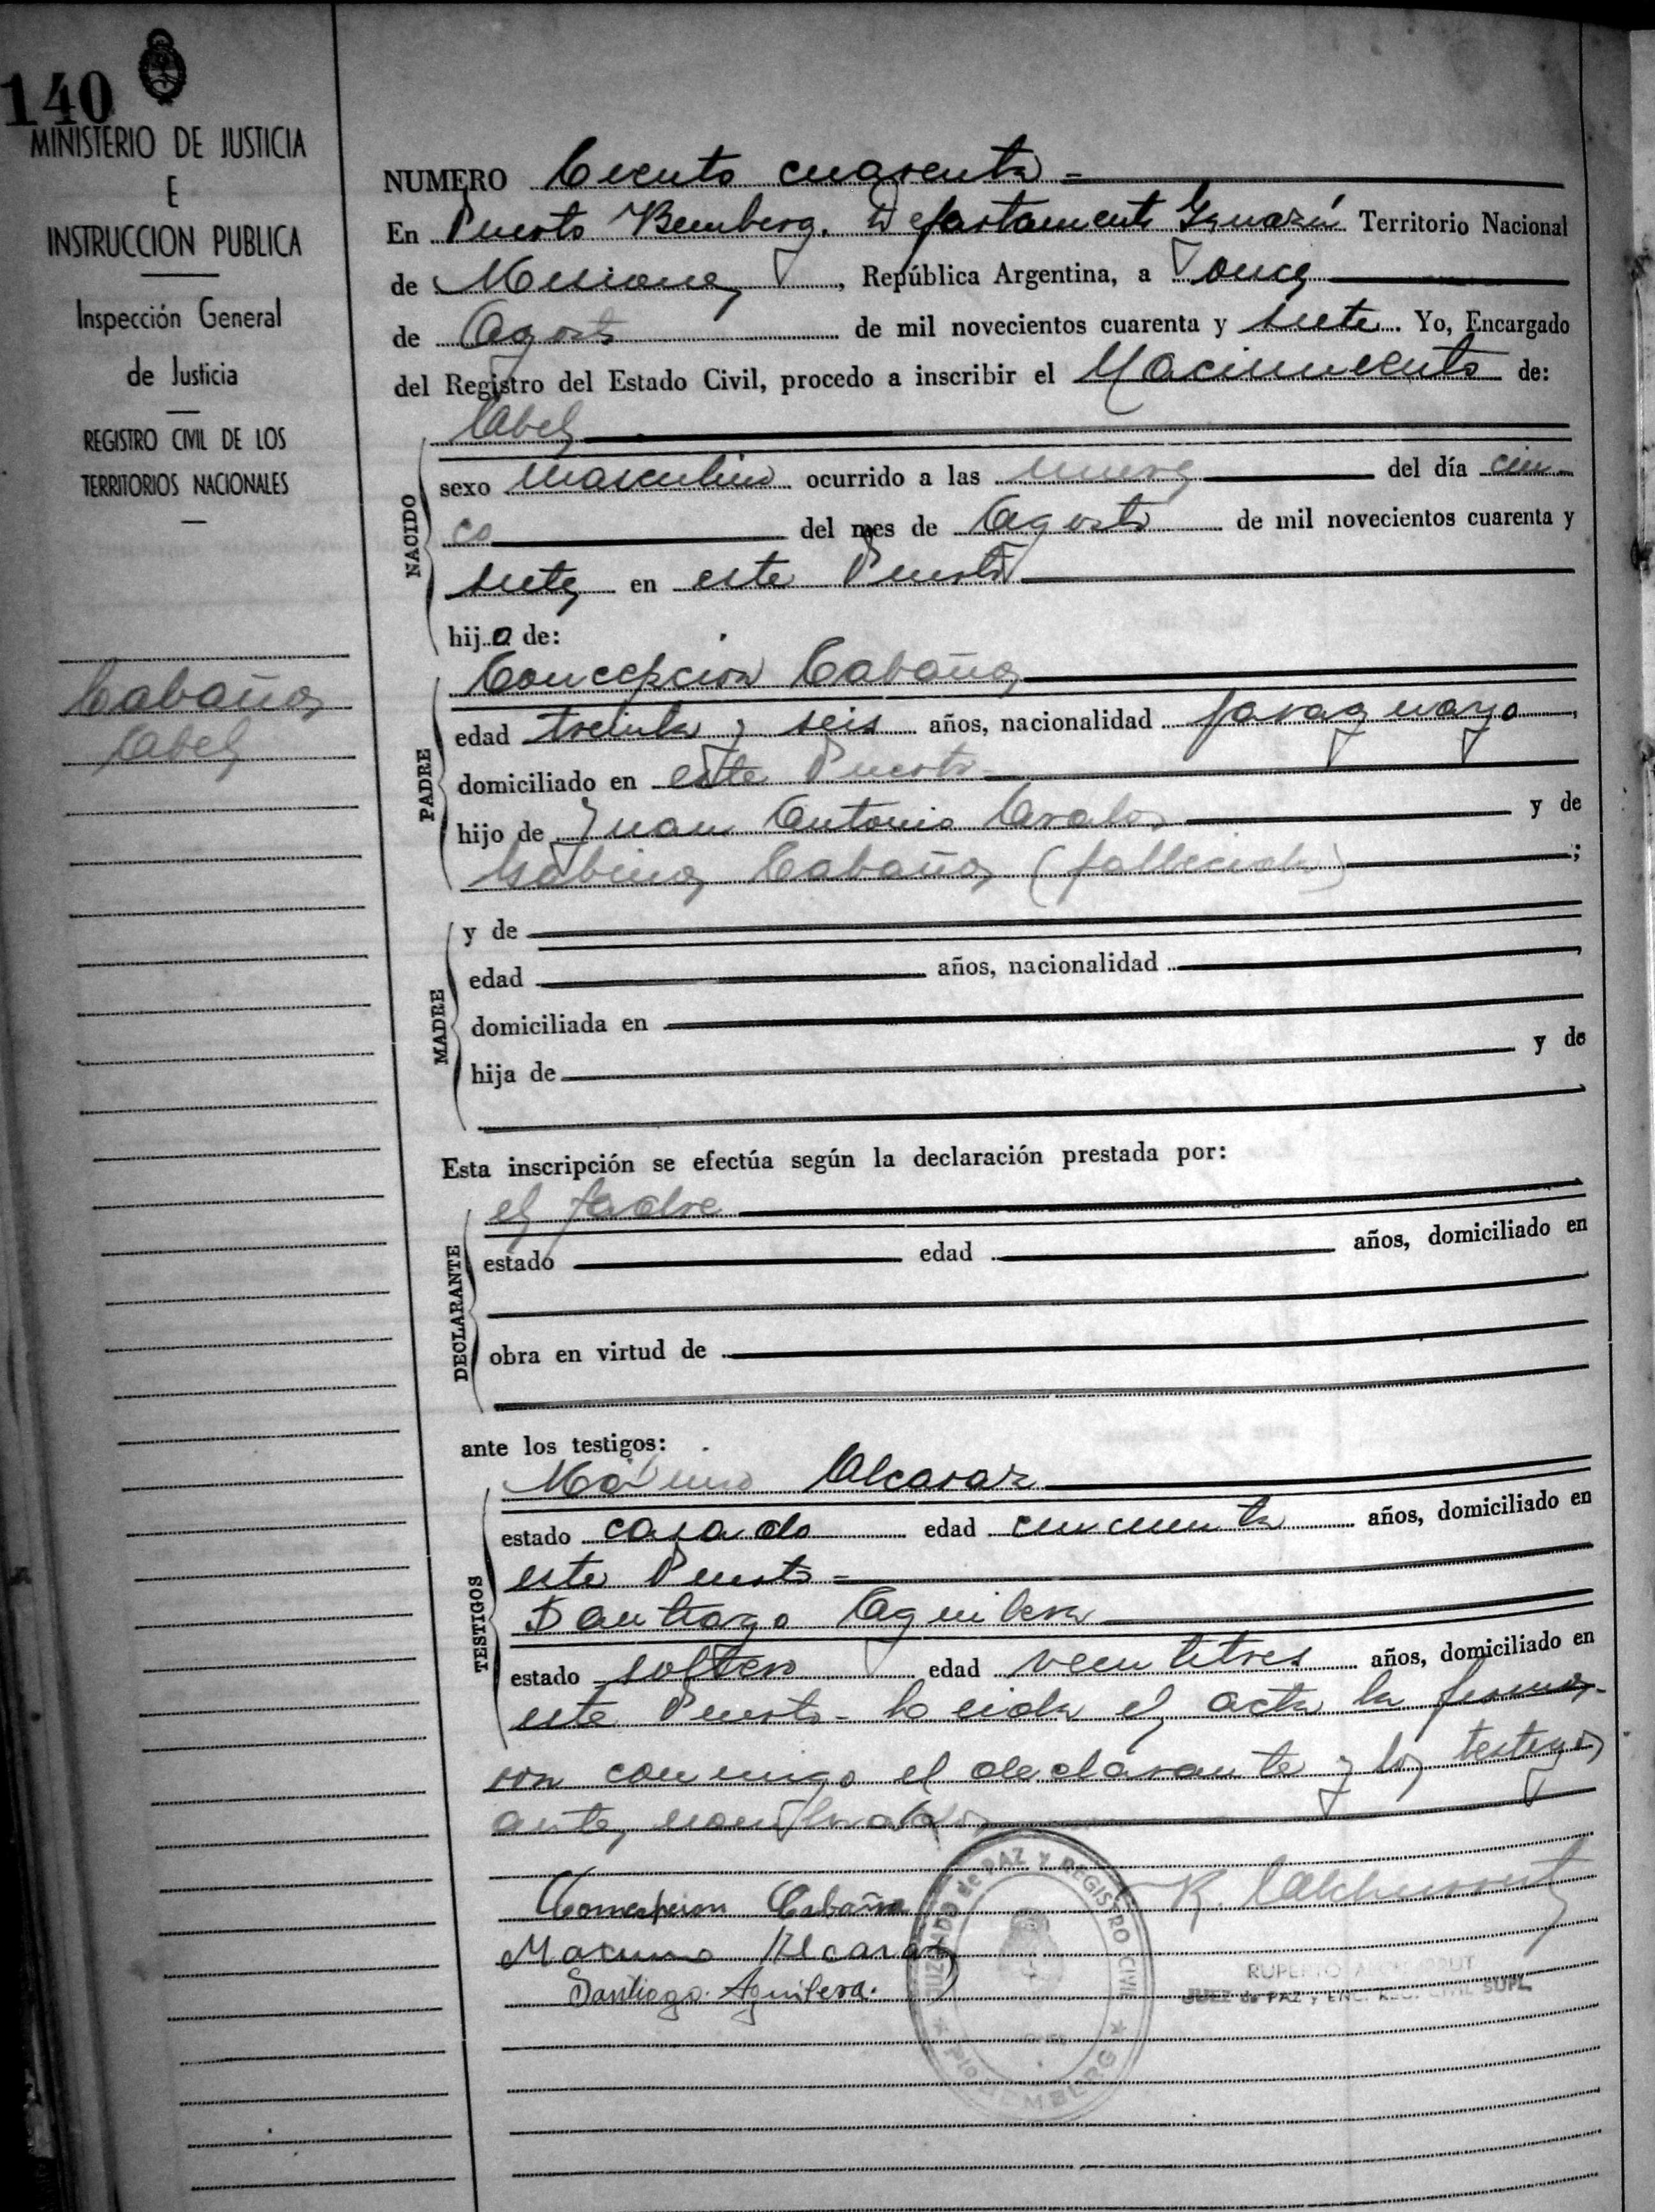 140
MINISTERIO DE JUSTICIA
E
INSTRUCCION PUBLICA
Inspección General
de Justicia
REGISTRO CIVIL DE LOS
TERRITORIOS NACIONALES
Cabaña
Abel
NUMERO Ciento cuarenta =
En Puerto Bemberg. Departamento Iguazú Territorio Nacional
de Misiones, República Argentina, a once
de Agosto de mil novecientos cuarenta y siete. Yo, Encargado
del Registro del Estado Civil, procedo a inscribir el Nacimiento de:
Abel
NACIDO
sexo masculino ocurrido a las nueve del día cin-
co del mes de Agosto de mil novecientos cuarenta y
siete en este Puerto
hijo de:
PADRE
Concepcion Cabaña
edad treinta y seis años, nacionalidad paraguayo,
domiciliado en este Puerto-
hijo de Juan Antonio Avalos y de
Sabina Cabaña (fallecida);
MADRE
y de
edad años, nacionalidad ,
domiciliada en
hija de y de
Esta inscripción se efectúa según la declaración prestada por:
DECLARANTE
el padre
estado edad años, domiciliado en
obra en virtud de
ante los testigos:
TESTIGOS
Máximo Alcaraz
estado casado edad cincuenta años, domiciliado en
este Puerto =
Santiago Aguilera
estado soltero edad veintitres años, domiciliado en
este Puerto- Leida el acta la firma-
ron conmigo el declarante y los testigos
antes nombrados
Concepcion Cabaña
Maximo Alcaraz
Santiago Aguilera.
JUZGADO de PAZ Y REGISTRO CIVIL
BEMBERG
RUPERTO
JUEZ de PAZ y ENC. REG. CIVIL SUPL.